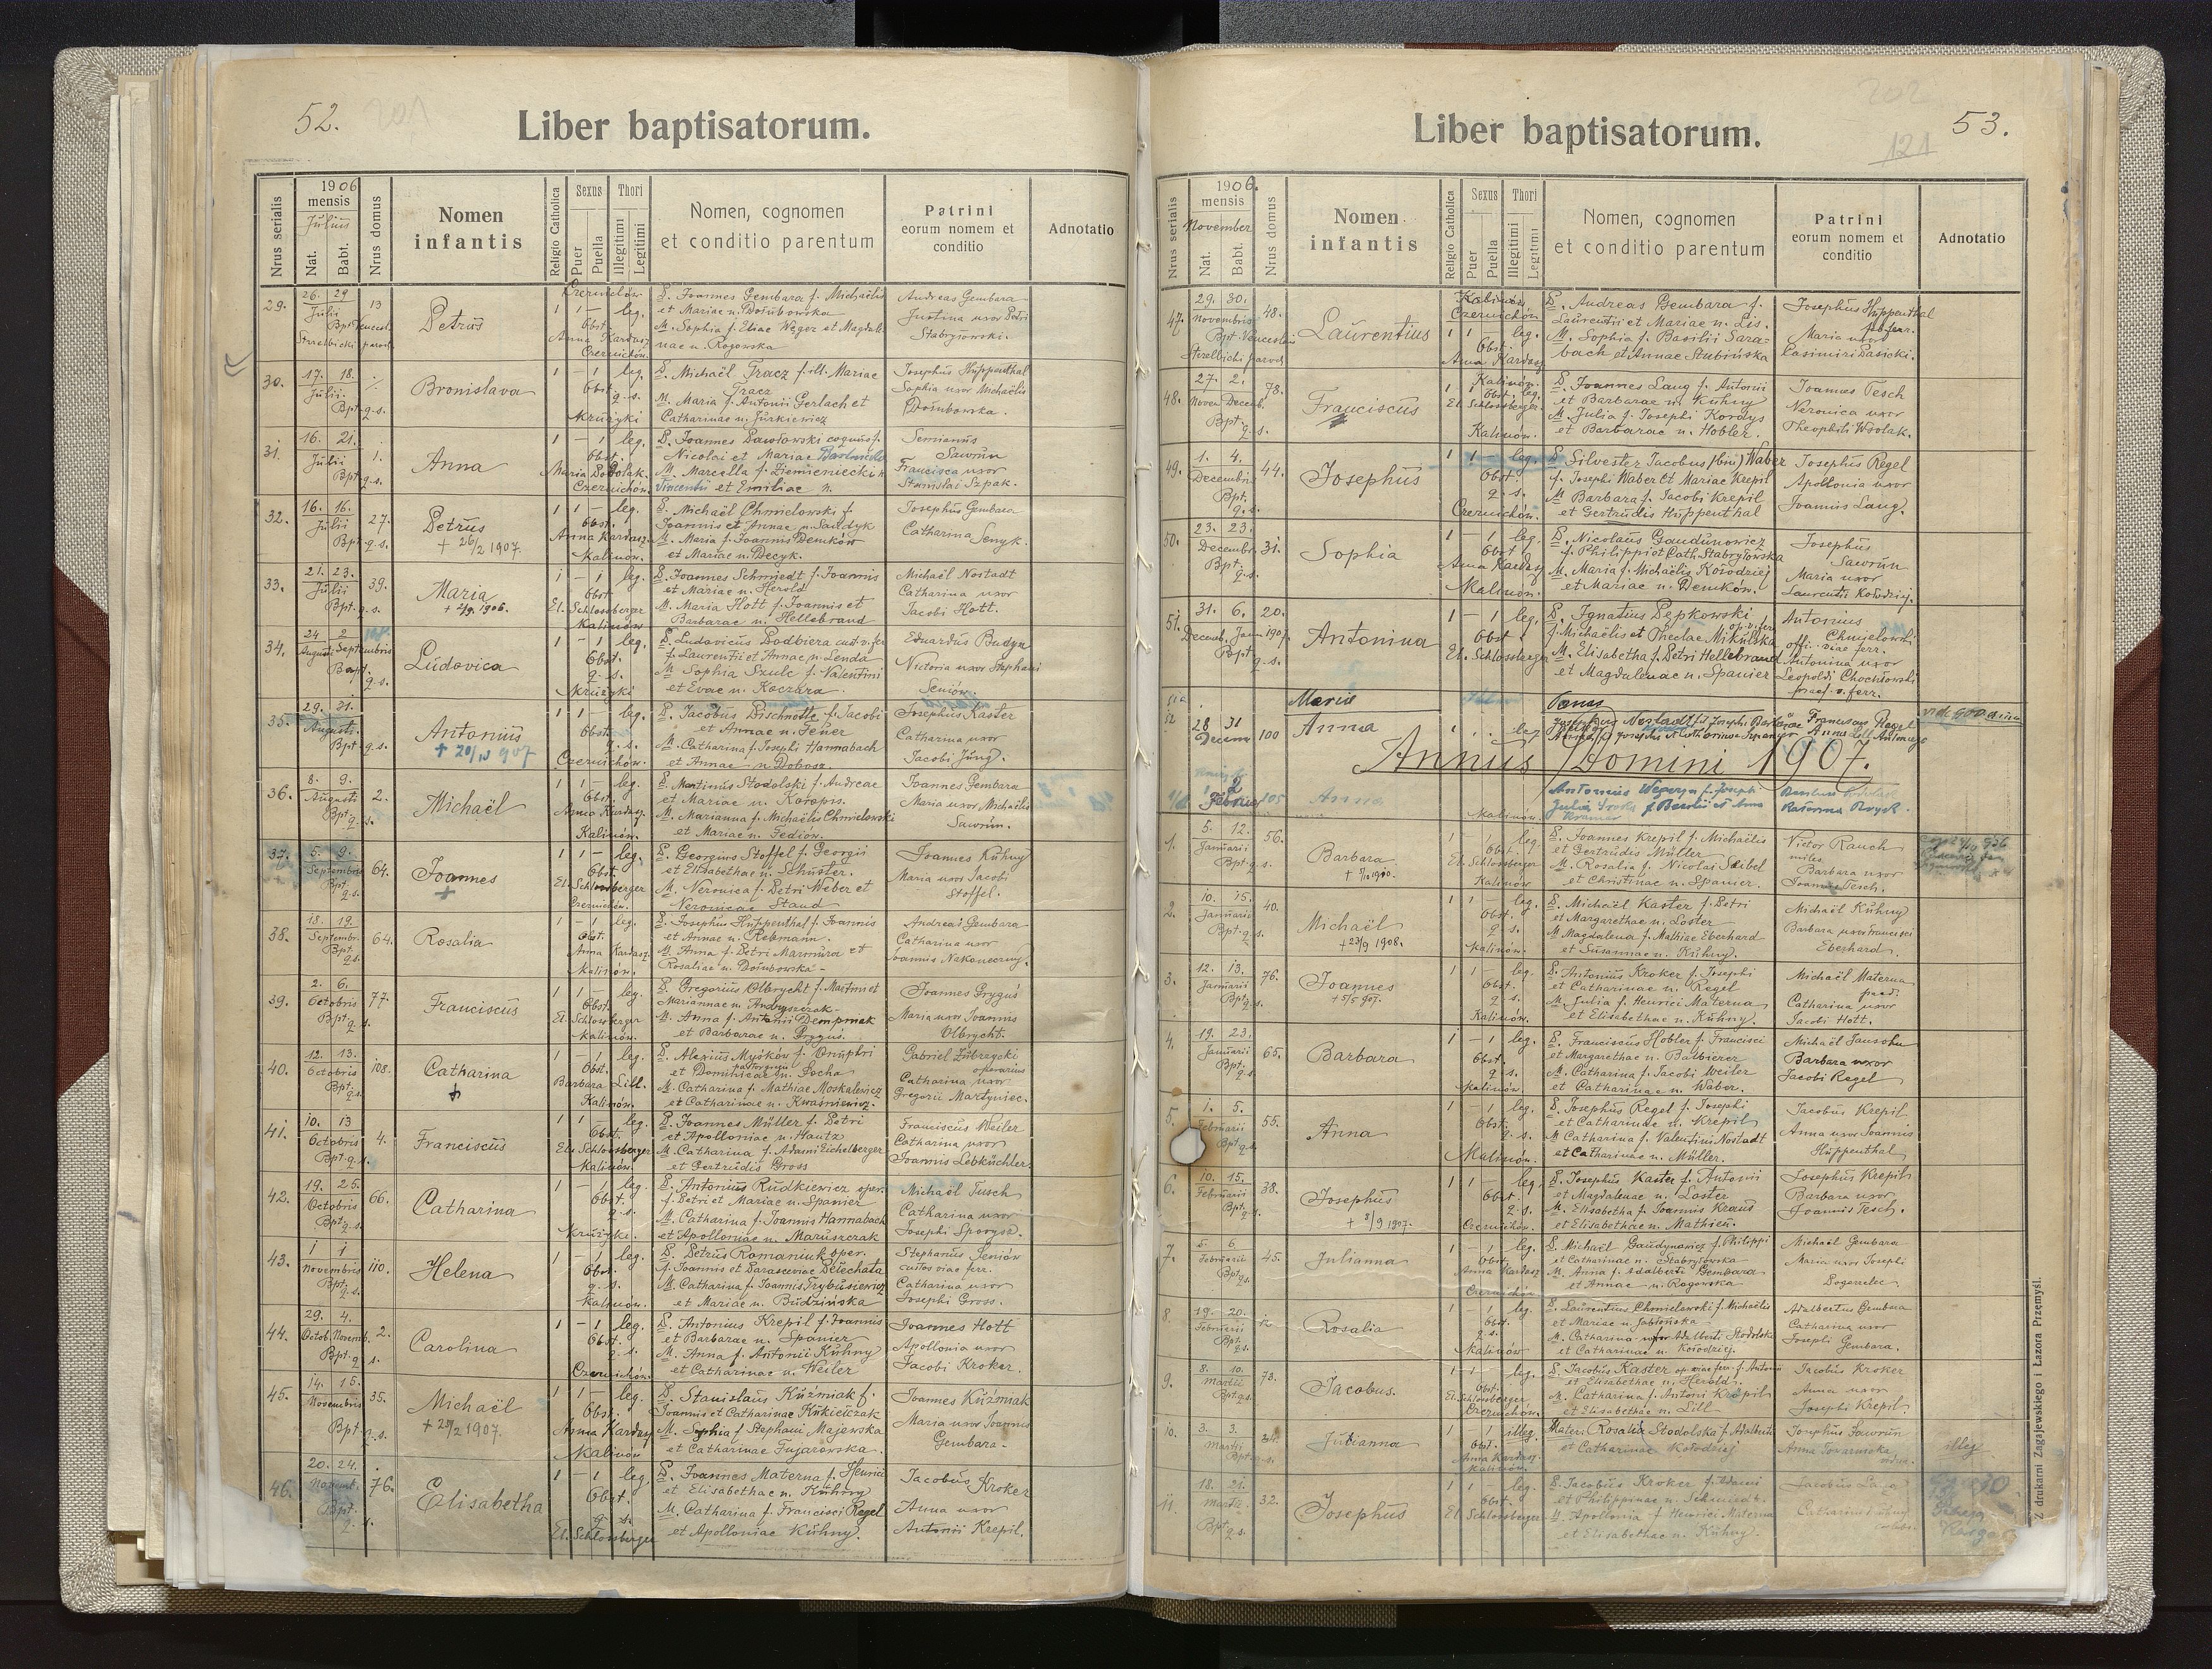 52.
Liber baptisatorum.
Nrus serialis
1906
mensis
Julius
Nat.
Babt.
Nrus domus
Nomen
infantis
Religio Catholica
Sexus
Puer
Puella
Thori
Illegitimi
Legitimi
Nomen, cognomen
et conditio parentum
Patrini
eorum nomem et
conditio
Adnotatio
29. 26. 29 13
Julii
Petrus
Czernichów
1 1 – leg.
Obst.
Anna Kardasz
Czernichów.
P. Joannes Gembara f. Michaëlis
et Mariae n. Dołubowska
M. Sophia f. Eliae Weger et Magdale
nae n. Rogowska
Andreas Gembara
Justina uxor Petri
Stabryowski.
30. 17. 18.
Julii
Bpt. q. s.
Bronislava
1 – 1 leg.
Obst.
q. s.
Kruzyki
P. Michaël Tracz f. ill. Mariae
Tracz
M. Maria f. Antonii Gerlach et
Catharinae n. Jurkiewicz
Josephus Huppenthal
Sophia uxor Michaëlis
Dołubowska.
31. 16. 21. 1.
Julii
Bpt. q. s.
Anna
1 – 1 leg.
Obst.
Czernichów.
P. Joannes Pawłowski
Nicolai et Mariae
M. Marcella f. Ziemieniecki
Vincentii et Emiliae n.
Sawrun
Francisca uxor
Stanislai Szpak.
32. 16. 16. 27.
Julii
Bpt. q. s.
Petrus
+ 26/2 1907.
1 1 – leg.
Obst.
Anna Kardasz.
Kalinów.
P. Michaël Chmielowski f.
Joannis et Annae n. Sandyk
M. Maria f. Joannis Demków
et Mariae n. Decyk.
Josephus Gembara
Catharina Senyk.
33. 21. 23. 39.
Julii
Bpt. q. s.
Maria
1 – 1 leg.
Obst.
El. Schlossberger
Kalinów
P. Joannes Schmiedt f. Joannis
et Mariae n. Herold
M. Maria Hott f. Joannis et
Barbarae n. Hellebrand
Michaël Nostadt
Catharina uxor
Jacobi Hott.
34. 24 2
Augusti Septembris
Bapt. q. s.
Ludovica
1 – 1 leg.
Obst.
q. s.
Kruzyki
P. Ludovicus Podbiera
f. Laurentii et Annae n. Lenda
M. Sophia Szulc f. Valentini
et Evae n. Koczara.
Eduardus Budyn
Victoria uxor Stephani
Seniów.
35. 29. 31.
Augusti
Bpt q. s.
Antonius
+ 20/10 907
1 1 – leg.
Obst.
q. s.
Czernichów.
P. Jacobus Bischnotte f. Jacobi
et Annae n. Fener
M. Catharina f. Josephi Hannabach
et Annae n. Dobosz.
Josephus Kaster
Catharina uxor
Jacobi Jung.
36. 8. 9. 2.
Augusti
Bpt. q. s.
Michaël
1 1 – leg.
Obst.
Anna Kardasz
Kalinów.
P. Martinus Stodolski f. Andreae
et Mariae n. Koropis.
M. Marianna f. Michaëlis Chmielowski
et Mariae n. Fediów.
Joannes Gembara
Maria uxor Michaëlis
Sawrun.
37. 5. 9. 64.
Septembris
Bpt. q. s.
Joannes
+
1 1 – leg.
Obst.
El. Schlossberger
Czernichów.
P. Georgius Stoffel f. Georgii
et Elisabethae n. Schuster.
M. Veronica f. Petri Weber et
Veronicae Staud
Joannes Kuhny
Maria uxor Jacobi
Stoffel.
38. 18. 19. 64.
Septembr.
Bpt. q. s.
Rosalia
1 – 1 leg.
Obst.
Anna Kardasz.
Kalinów.
P. Josephus Huppenthal f. Joannis
et Annae n. Rebmann.
M. Anna f. Petri Marmura et
Rosaliae n. Dołubowska –
Andreas Gembara
Catharina uxor
Joannis Nakoneczny.
39. 2. 6. 77.
Octobris
Bpt. q. s.
Franciscus
1 1 – leg.
Obst.
El. Schlossberger
Kalinów.
P. Gregorius Olbrycht f. Martini et
Mariannae n. Andryszczak –
M. Anna f. Antonii Dempniak
et Barbarae n. Gryguś.
Joannes Gryguś
Maria uxor Joannis
Olbrycht.
40. 12. 13. 108.
Octobris
Bpt. q. s.
Catharina
1 – 1 leg.
Obst.
Barbara Lill.
Kalinów.
P. Alexius Myśków f. Onuphri
et Dominicae n. Socha
M. Catharina f. Mathiae Moskalewicz
et Catharinae n. Kwaśniewicz.
Gabriel Zubrzycki
operarius
Catharina uxor
Gregorii Martyniec.
41. 10. 13 4.
Octobris
Bpt. q. s.
Franciscus
1 1 – leg.
Obst.
El. Schlossberger
Kalinów.
P. Joannes Müller f. Petri
et Apolloniae n. Hautz
M. Catharina f. Adami Eichelberger
et Gertrudis Gross
Franciscus Weiler
Catharina uxor
Joannis Lebküchler.
42. 19. 25. 66.
Octobris
Bpt. q. s.
Catharina
1 – 1 leg.
Obst.
q. s.
Kruzyki.
P. Antonius Rudkiewicz oper.
f. Petri et Mariae n. Spanier
M. Catharina f. Joannis Hannabach
et Apolloniae n. Maruszczak
Michaël Tusch
Catharina uxor
Josephi Sporysz.
43. 1 1 110.
Novembris
Bpt. q. s.
Helena
1 – 1 leg.
Obst.
q. s.
Kalinów.
P. Petrus Romaniuk oper.
f. Joannis et Parasceviae Pełechata
M. Catharina f. Joannis Trybusiewicz
et Mariae n. Budzińska
Stephanus Seniów
custos viae ferr.
Catharina uxor
Josephi Gross.
44. 29. 4. 2.
Octob. Novemb.
Bpt. q. s.
Carolina
1 – 1 leg.
Obst.
q. s.
Czernichów.
P. Antonius Krepil f. Joannis
et Barbarae n. Spanier
M. Anna f. Antonii Kuhny
et Catharinae n. Weiler
Joannes Hott
Apollonia uxor
Jacobi Kroker.
45. 14. 15. 35.
Novembris
Bpt. q. s.
Michaël
1 1 – leg.
Obst.
Anna Kardasz
Kalinów
P. Stanislaus Kuźmiak f.
Joannis et Catharinae Kukieiczak
M. Sophia f. Stephani Majewska
et Catharinae Fujarowska.
Joannes Kuźmiak
Maria uxor Joannis
Gembara –
46. 20. 24. 76.
Bpt. q. s.
Elisabetha
1 – 1 leg.
Obst.
q. s.
El. Schlossberger
P. Joannes Materna f. Henrici
et Elisabethae n. Kuhny
M. Catharina f. Francisci Regel
et Apolloniae Kuhny.
Jacobus Kroker
Anna uxor
Antonii Krepil.
53.
121
Liber baptisatorum.
Nrus serialis
1906.
mensis
November
Nat.
Babt.
Nrus domus
Nomen
infantis
Religio Catholica
Sexus
Puer
Puella
Thori
Illegitimi
Legitimi
Nomen, cognomen
et conditio parentum
Patrini
eorum nomem et
conditio
Adnotatio
47. 29. 30. 48.
Novembris
Laurentius
Kalinów.
Czernichów
1 1 – leg.
Obst.
Anna Kardasz
P. Andreas Gembara f.
Laurentii et Mariae n. Lis.
M. Sophia f. Basilii Sara-
bach et Annae Stubińska
Josephus Huppenthal
Maria uxor
Casimiri Pasicki.
48. 27. 2. 78.
Novem. Decemb.
Bpt. q. s.
Franciscus
Kalinów.
1 1 Obst. leg.
El. Schlossberger.
Kalinów.
P. Joannes Lang f. Antonii
et Barbarae n. Kuhny
M. Julia f. Josephi Kordys
et Barbarae n. Hobler.
Joannes Tesch
Veronica uxor
Theophili Wsolak.
49. 1. 4. 44.
Decembris
Bpt. q. s.
Josephus
1 1 – leg.
Obst.
q. s.
Czernichów.
P. Silvester Jacobus (bin) Waber
f. Josephi Waber et Mariae Krepil
M. Barbara f. Jacobi Krepil
et Gertrudis Huppenthal
Josephus Regel
Apollonia uxor
Joannis Lang.
50. 23. 23. 31.
Decembr.
Bpt. q. s.
Sophia
1 – 1 leg.
Obst.
Anna Kardasz
Kalinów.
P. Nicolaus Gaudunowicz
f. Philippi et Cath. Stabryłowska
M. Maria f. Michaëlis Kołodziej
et Mariae n. Demków.
Josephus
Sawrun
Maria uxor
Laurentii Kołodziej.
51. 31. 6. 20.
Decemb. Jan. 1907.
Bpt. q. s.
Antonina
1 – 1 leg.
Obst.
El. Schlossberger
P. Ignatius Pepkowski
f. Michaëlis et Theclae Mikulska
M. Elisabetha f. Petri Hellebrand
et Magdalenae n. Spanier
Antonius
Chmielowski
offi. viae ferr.
Antonina uxor
Leopoldi Chochłowski
51a
Maria
52 28 31 100
Anna
Annus Domini 1907.
Anna
Kalinów.
Antonius
1. 5. 12. 56.
Januarii
Bpt. q. s.
Barbara
1 – 1 leg.
Obst.
El. Schlossberger
Kalinów
P. Joannes Krepil f. Michaëlis
et Gertrudis Müller
M. Rosalia f. Nicolai Seibel
et Christinae n. Spanier.
Victor Rauch
miles
Barbara uxor
Joannis Tesch.
2. 10. 15. 40.
Januarii
Bpt. q. s.
Michaël
+ 23/9 1908.
1 1 – leg.
Obst.
q. s.
Kalinów.
P. Michaël Kaster f. Petri
et Margarethae n. Loster
M. Magdalena f. Mathiae Eberhard
et Susannae n. Kuhny.
Michaël Kuhny
Barbara uxor Francisci
Eberhard.
3. 12. 13. 76.
Januarii
Bpt. q. s.
Joannes
+ 5/5 907.
1 1 – leg.
Obst.
q. s.
Kalinów.
P. Antonius Kroker f. Josephi
et Catharinae n. Regel
M. Julia f. Henrici Materna
et Elisabethae n. Kuhny.
Michaël Materna
Catharina uxor
Jacobi Hott.
4. 19. 23. 65.
Januarii
Bpt. q. s.
Barbara
1 – 1 leg.
Obst.
q. s.
Kalinów.
P. Franciscus Hobler f. Francisci
et Margarethae n. Balbierer
M. Catharina f. Jacobi Weiler
et Catharinae n. Waber.
Michaël Jansohn
Barbara uxor
Jacobi Regel
5. 1. 5. 55.
Februarii
Bpt. q. s.
Anna
1 – 1 leg.
Obst.
q. s.
Kalinów.
P. Josephus Regel f. Josephi
et Catharinae n. Krepil
M. Catharina f. Valentini Nostadt
et Catharinae n. Müller.
Jacobus Krepil
Anna uxor Joannis
Huppenthal
6. 10. 15. 38.
Februarii
Bpt. q. s.
Josephus
+ 8/9 1907.
1 1 – leg.
Obst.
q. s.
Czernichów.
P. Josephus Kaster f. Antonii
et Magdalenae n. Loster
M. Elisabetha f. Joannis Kraus
et Elisabethae n. Mathieu.
Josephus Krepil
Barbara uxor
Joannis Tesch.
7. 5. 6 45.
Februarii
Bpt. q. s.
Julianna
1 – 1 leg.
Obst.
Anna Kardasz
Czernichów
P. Michaël Gaudynowicz f. Philippi
et Catharinae n. Stabryłowska
M. Anna f. Adalberti Gembara
et Annae n. Rogowska
Michaël Gembara
Maria uxor Josephi
8. 19. 20. 12
Februarii
Bpt. q. s.
Rosalia
1 – 1 leg.
Obst.
q. s.
Kalinów
P. Laurentius Chmielowski f. Michaëlis
et Mariae n. Jabłońska
M. Catharina uxor Adalberti Stodolska
et Catharinae n. Kołodziej.
Adalbertus Gembara
Catharina uxor
Josephi Gembara.
9. 8. 10. 73.
Martii
Bpt. q. s.
Jacobus.
1 1 – leg.
Obst.
El. Schlossberger
Czernichów.
P. Jacobus Kaster op. viae ferr. f. Antonii
et Elisabethae n. Herold.
M. Catharina f. Antoni Krepil
et Elisabethae n. Lill
Jacobus Kroker
Anna uxor
Josephi Krepil.
10. 3. 3.
Martii
Bpt. q. s.
Julianna
1 – 1 illeg.
Obst.
Anna Kardasz.
Kalinów.
Mater: Rosalia Stodolska f. Adalberti
et Catharinae Kołodziej
Josephus Sawrun
illeg
11. 18. 21. 32.
Martii
Bpt. q. s.
Josephus
1 1 – leg.
Obst.
El. Schlossberger
P. Jacobus Kroker f. Adami
et Philippinae n.
M. Apollonia f. Henrici Materna
et Elisabethae n. Kuhny.
Z drukarni Zagajewskiego i Łazora Przemyśl.